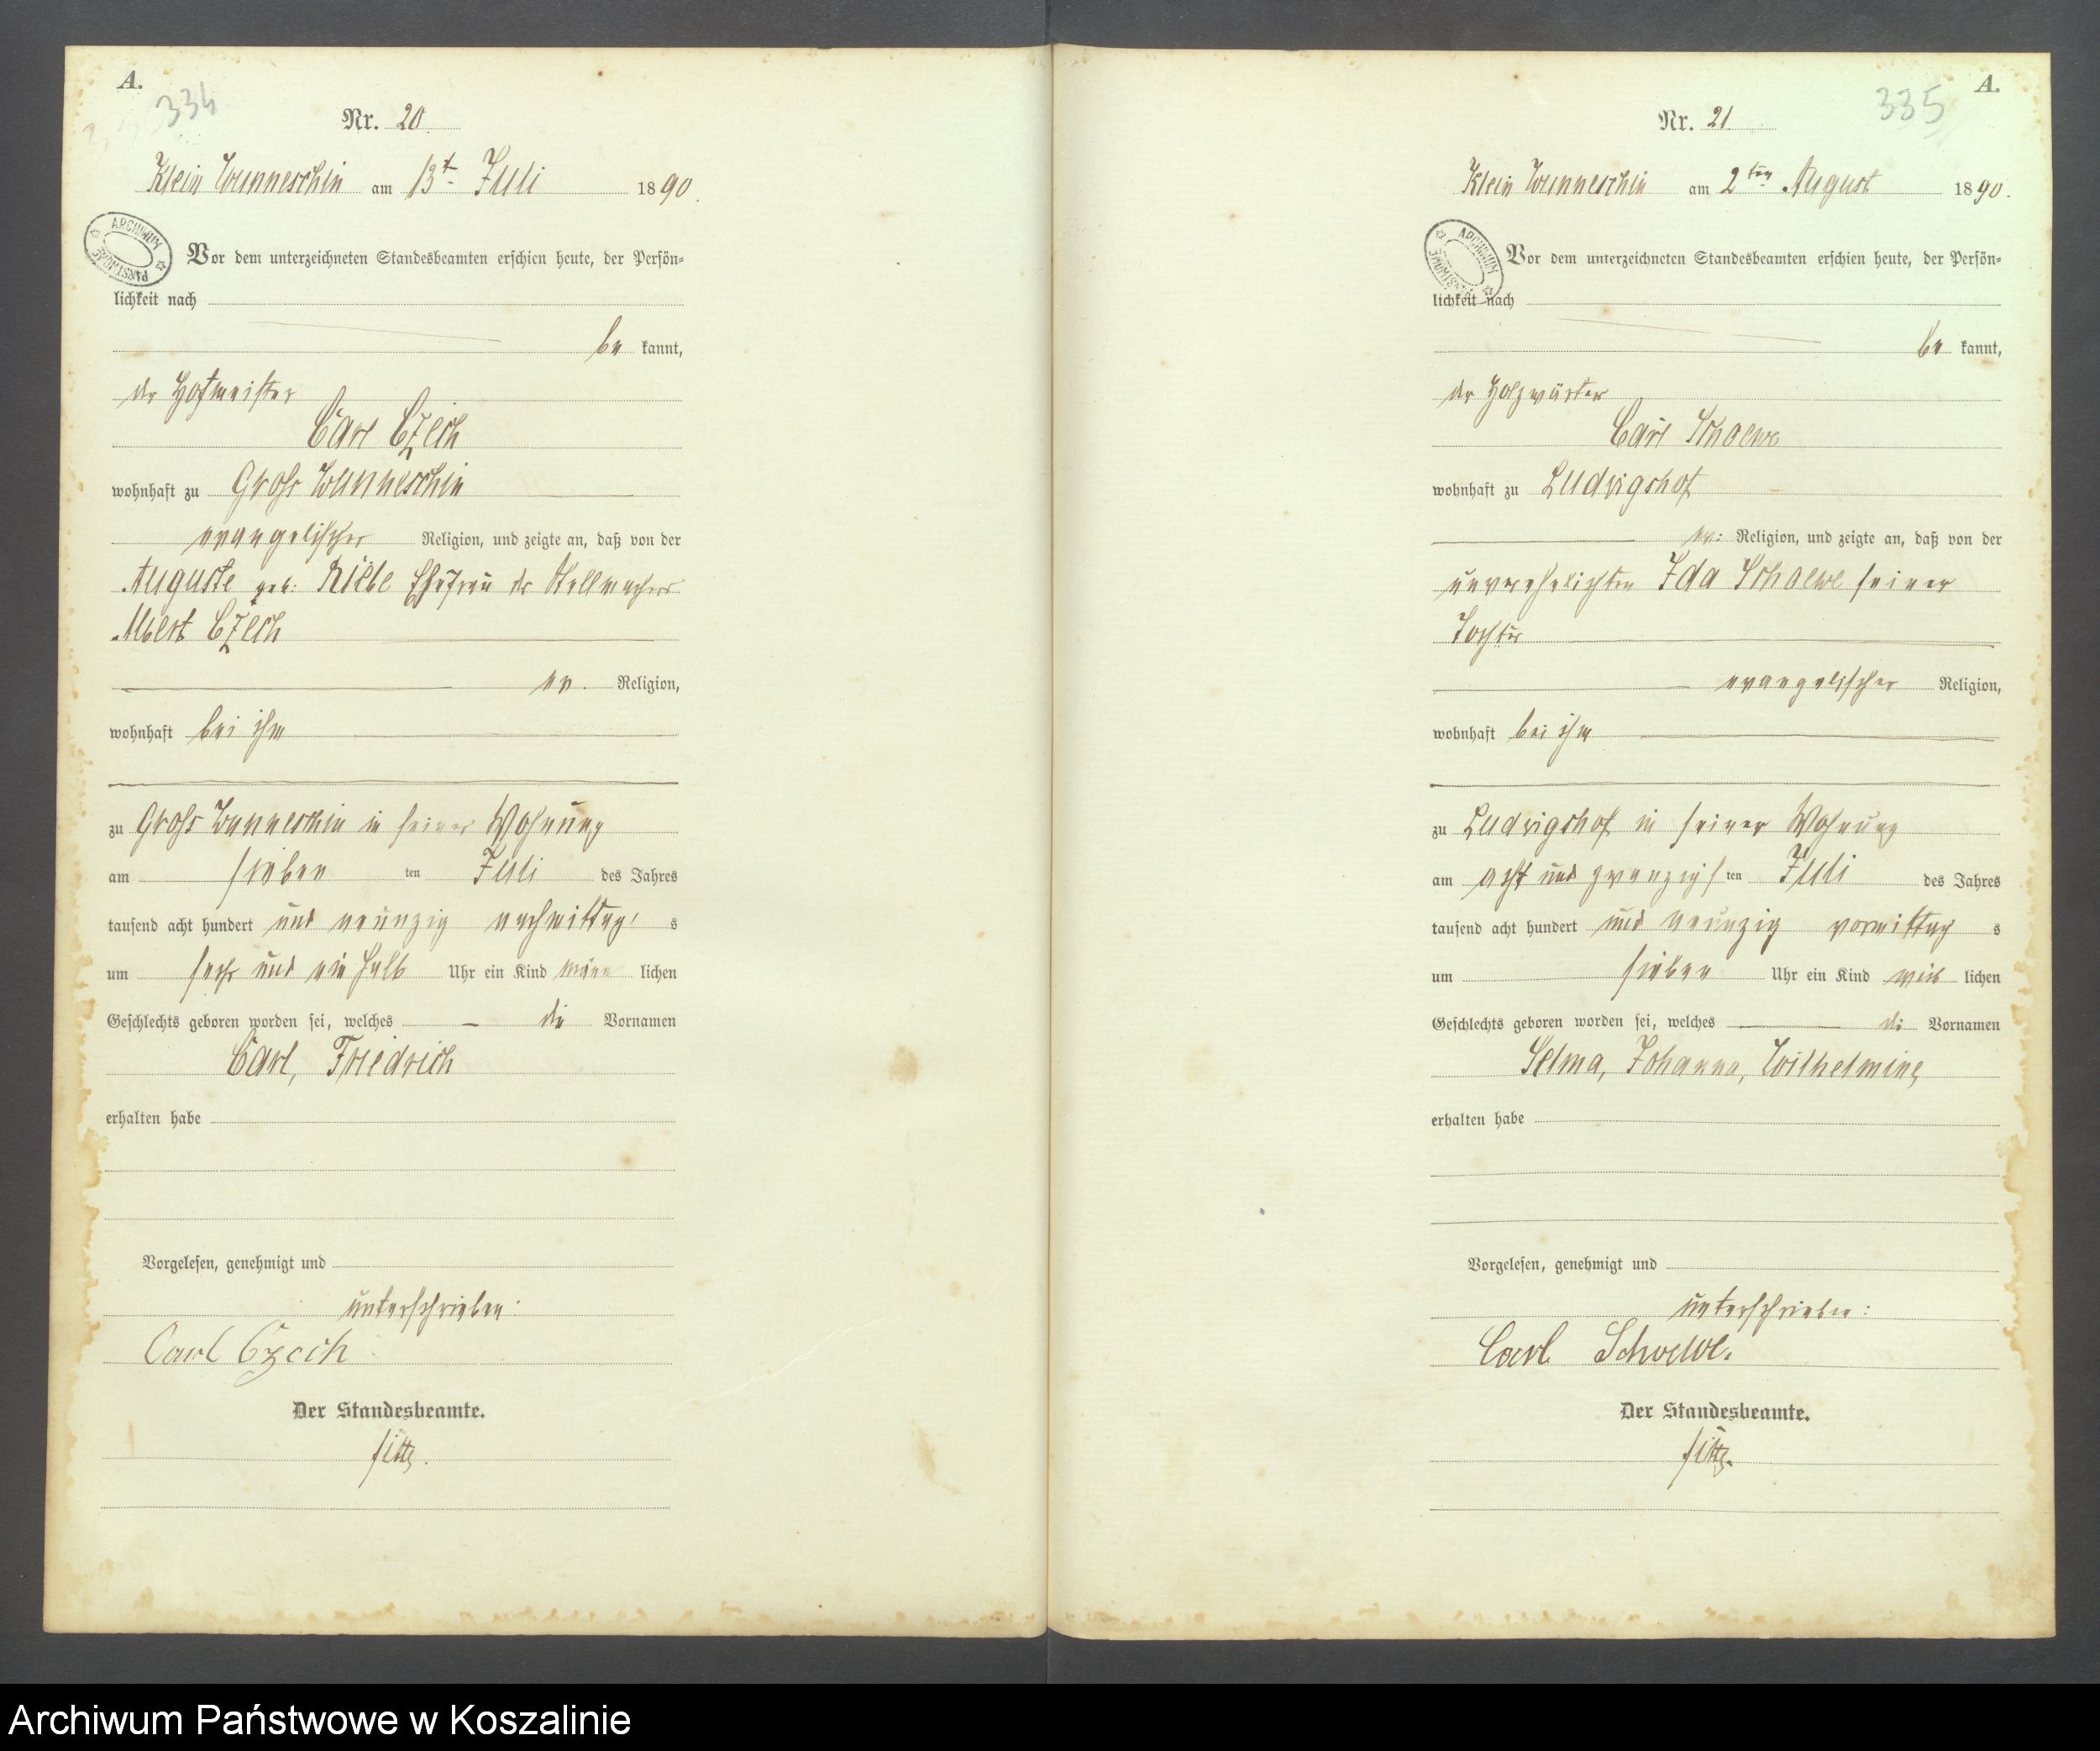 A.
334
Nr. 20.
Klein Wunneschin am 13t Juli 1890.
ARCHIWUM PAŃSTWOWE
Vor dem unterzeichneten Standesbeamten erschien heute, der Persön-
lichkeit nach
be kannt,
der Hofmeister
Carl Czech
wohnhaft zu Gross Wunneschin
evangelischer Religion, und zeigte an, daß von der
Auguste geb: Ehefrau des Stellmachers
Albert Czech
ev. Religion,
wohnhaft bei ihm
zu Gross Wunneschin in seiner Wohnung
am sieben ten Juli des Jahres
tausend acht hundert und neunzig nachmittag s
um sechs und ein halb Uhr ein Kind männ lichen
Geschlechts geboren worden sei, welches die Vornamen
Carl, Friedrich
erhalten habe
Vorgelesen, genehmigt und
unterschrieben:
Carl Czech
Der Standesbeamte.
A.
335
Nr. 21
Klein Wunneschin am 2ten August 1890.
ARCHIWUM PAŃSTWOWE
Vor dem unterzeichneten Standesbeamten erschien heute, der Persön-
lichkeit nach
be kannt,
der Holzwärter
Carl Schoewe
wohnhaft zu Ludwigshof
ev: Religion, und zeigte an, daß von der
unverehelichten Ida Schoewe seiner
Tochter
evangelischer Religion,
wohnhaft bei ihm
zu Ludwigshof in seiner Wohnung
am acht und zwanzigs ten Juli des Jahres
tausend acht hundert und neunzig vormittag s
um sieben Uhr ein Kind weib lichen
Geschlechts geboren worden sei, welches die Vornamen
Selma, Johanna, Wilhelmine,
erhalten habe
Vorgelesen, genehmigt und
unterschrieben:
Carl Schoewe.
Der Standesbeamte.
Archiwum Państwowe w Koszalinie